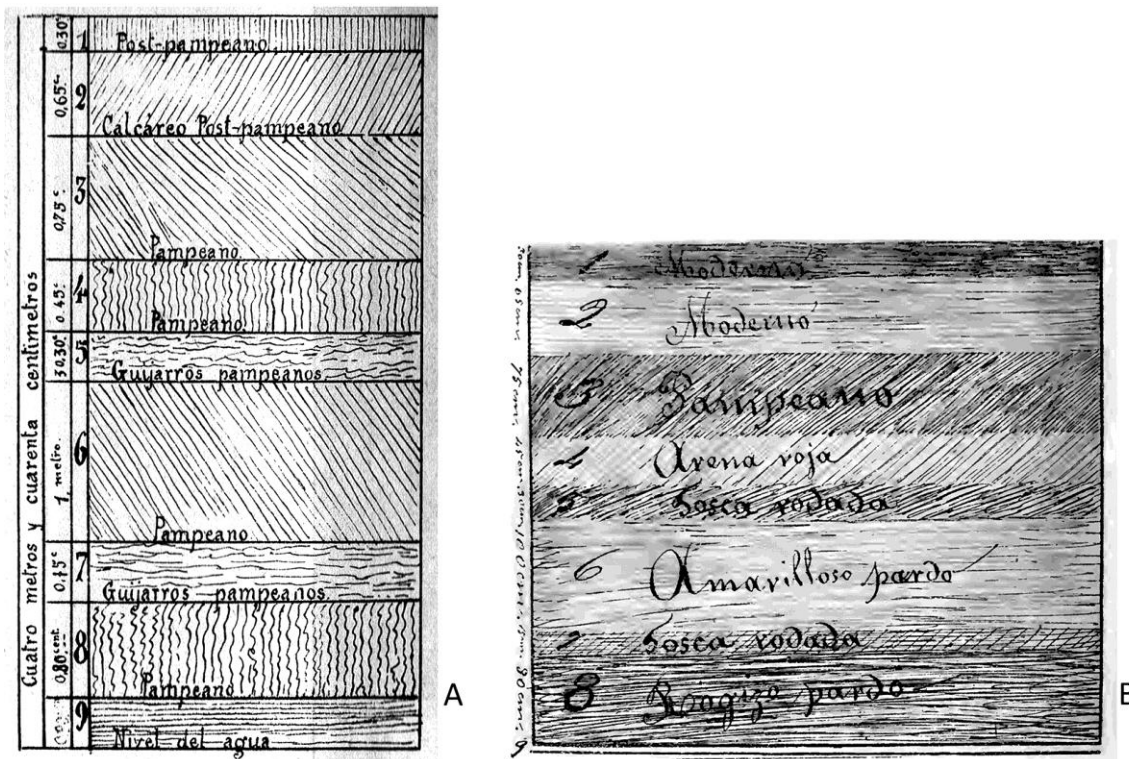 Cuatro metros y cuarenta centimetros
0.30ᶜ 1 Post-pampeano
0,65ᶜ 2 Calcáreo Post-pampeano
0,75ᶜ 3 Pampeano
0.45ᶜ 4 Pampeano
0,30ᶜ 5 Guijarros pampeanos
1 metro. 6 Pampeano
7 Guijarros pampeanos
0,80 cent. 8 Pampeano
9 Nivel del agua
A
1 Moderno
2 Moderno
3 Pampeano
4 Arena roja
5 Tosca rodada
6 Amarilloso pardo
7 Tosca rodada
8 Rogizo pardo